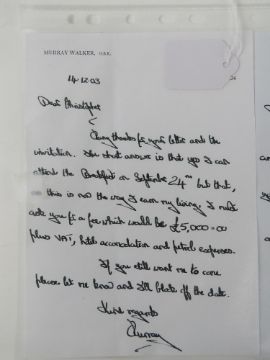 MURRAY WALKER, OBE.
14.12.03
Dear Christopher
Many thanks for your letter and the
invitation. The short answer is that yes I can
attend the Breakfast on September 24th but that,
as this is now the way I earn my living I must
ask you for a fee which would be £5,000-00
plus VAT, hotel accomodation and petrol expenses.
If you still want me to come
please let me know and I'll block off the date.
Kind regards
Murray